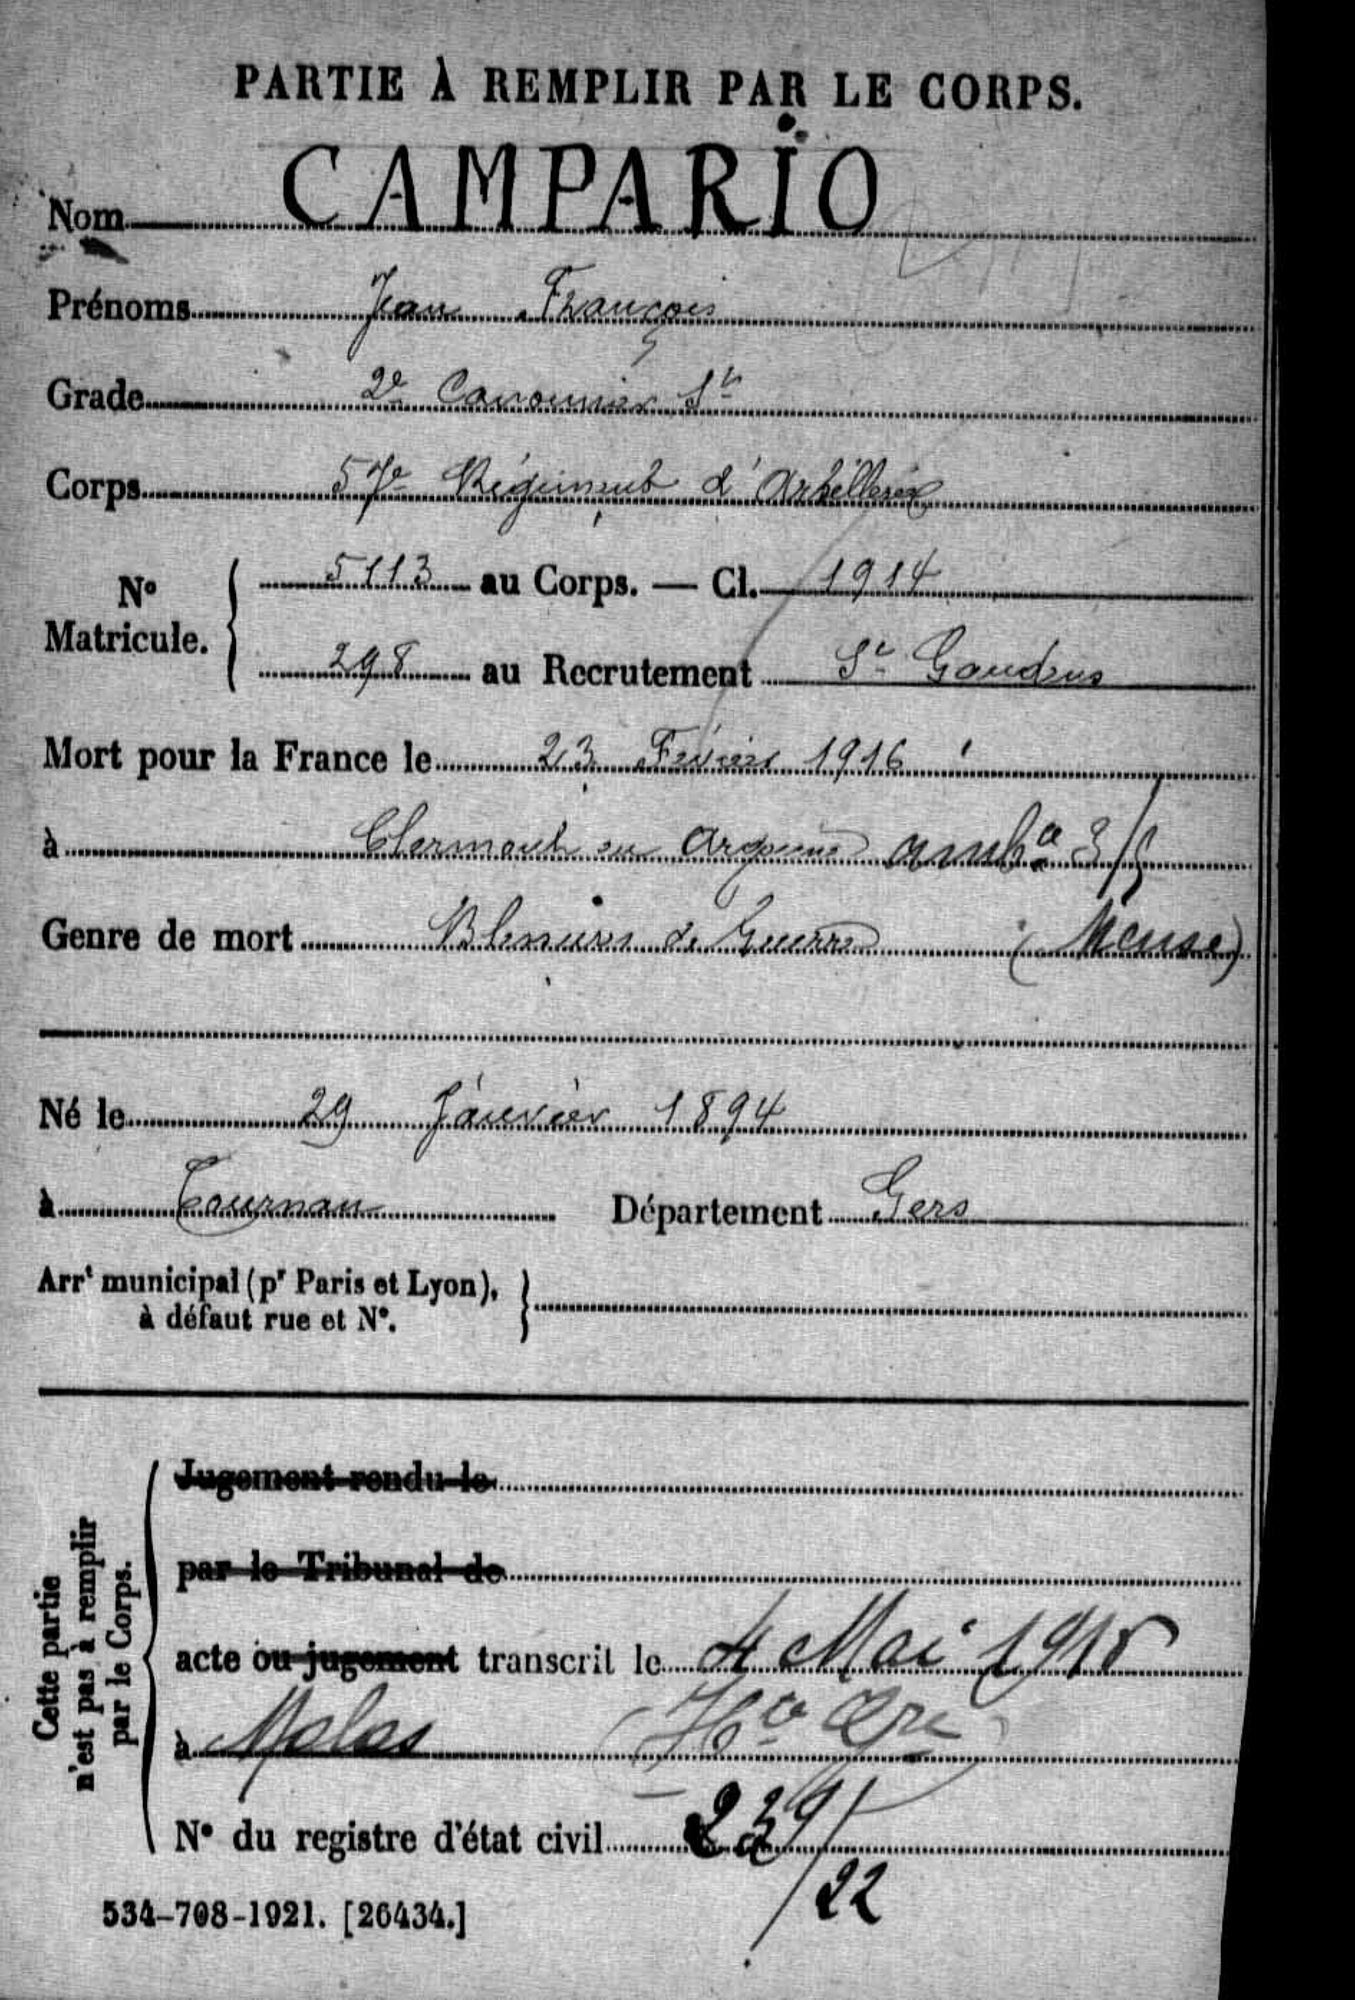 PARTIE À REMPLIR PAR LE CORPS.
Nom CAMPARIO
Prénoms Jean François
Grade 2e Canonnier St
Corps 57e Régiment d'Artillerie
No Matricule. 5113 au Corps. — Cl. 1914
298 au Recrutement St Gaudens
Mort pour la France le 23 Février 1916
à Clermont en Argonne ambce 3/5
Genre de mort Blessures de Guerre (Meuse)
Né le 29 Janvier 1894
à Tournan Département Gers
Arrt municipal (pr Paris et Lyon), à défaut rue et No.
Cette partie n'est pas à remplir par le Corps.
Jugement rendu le
par le Tribunal de
acte ou jugement transcrit le 4 Mai 1916
à Molas (Hte Gne)
No du registre d'état civil 239/22
534-708-1921. [26434.]